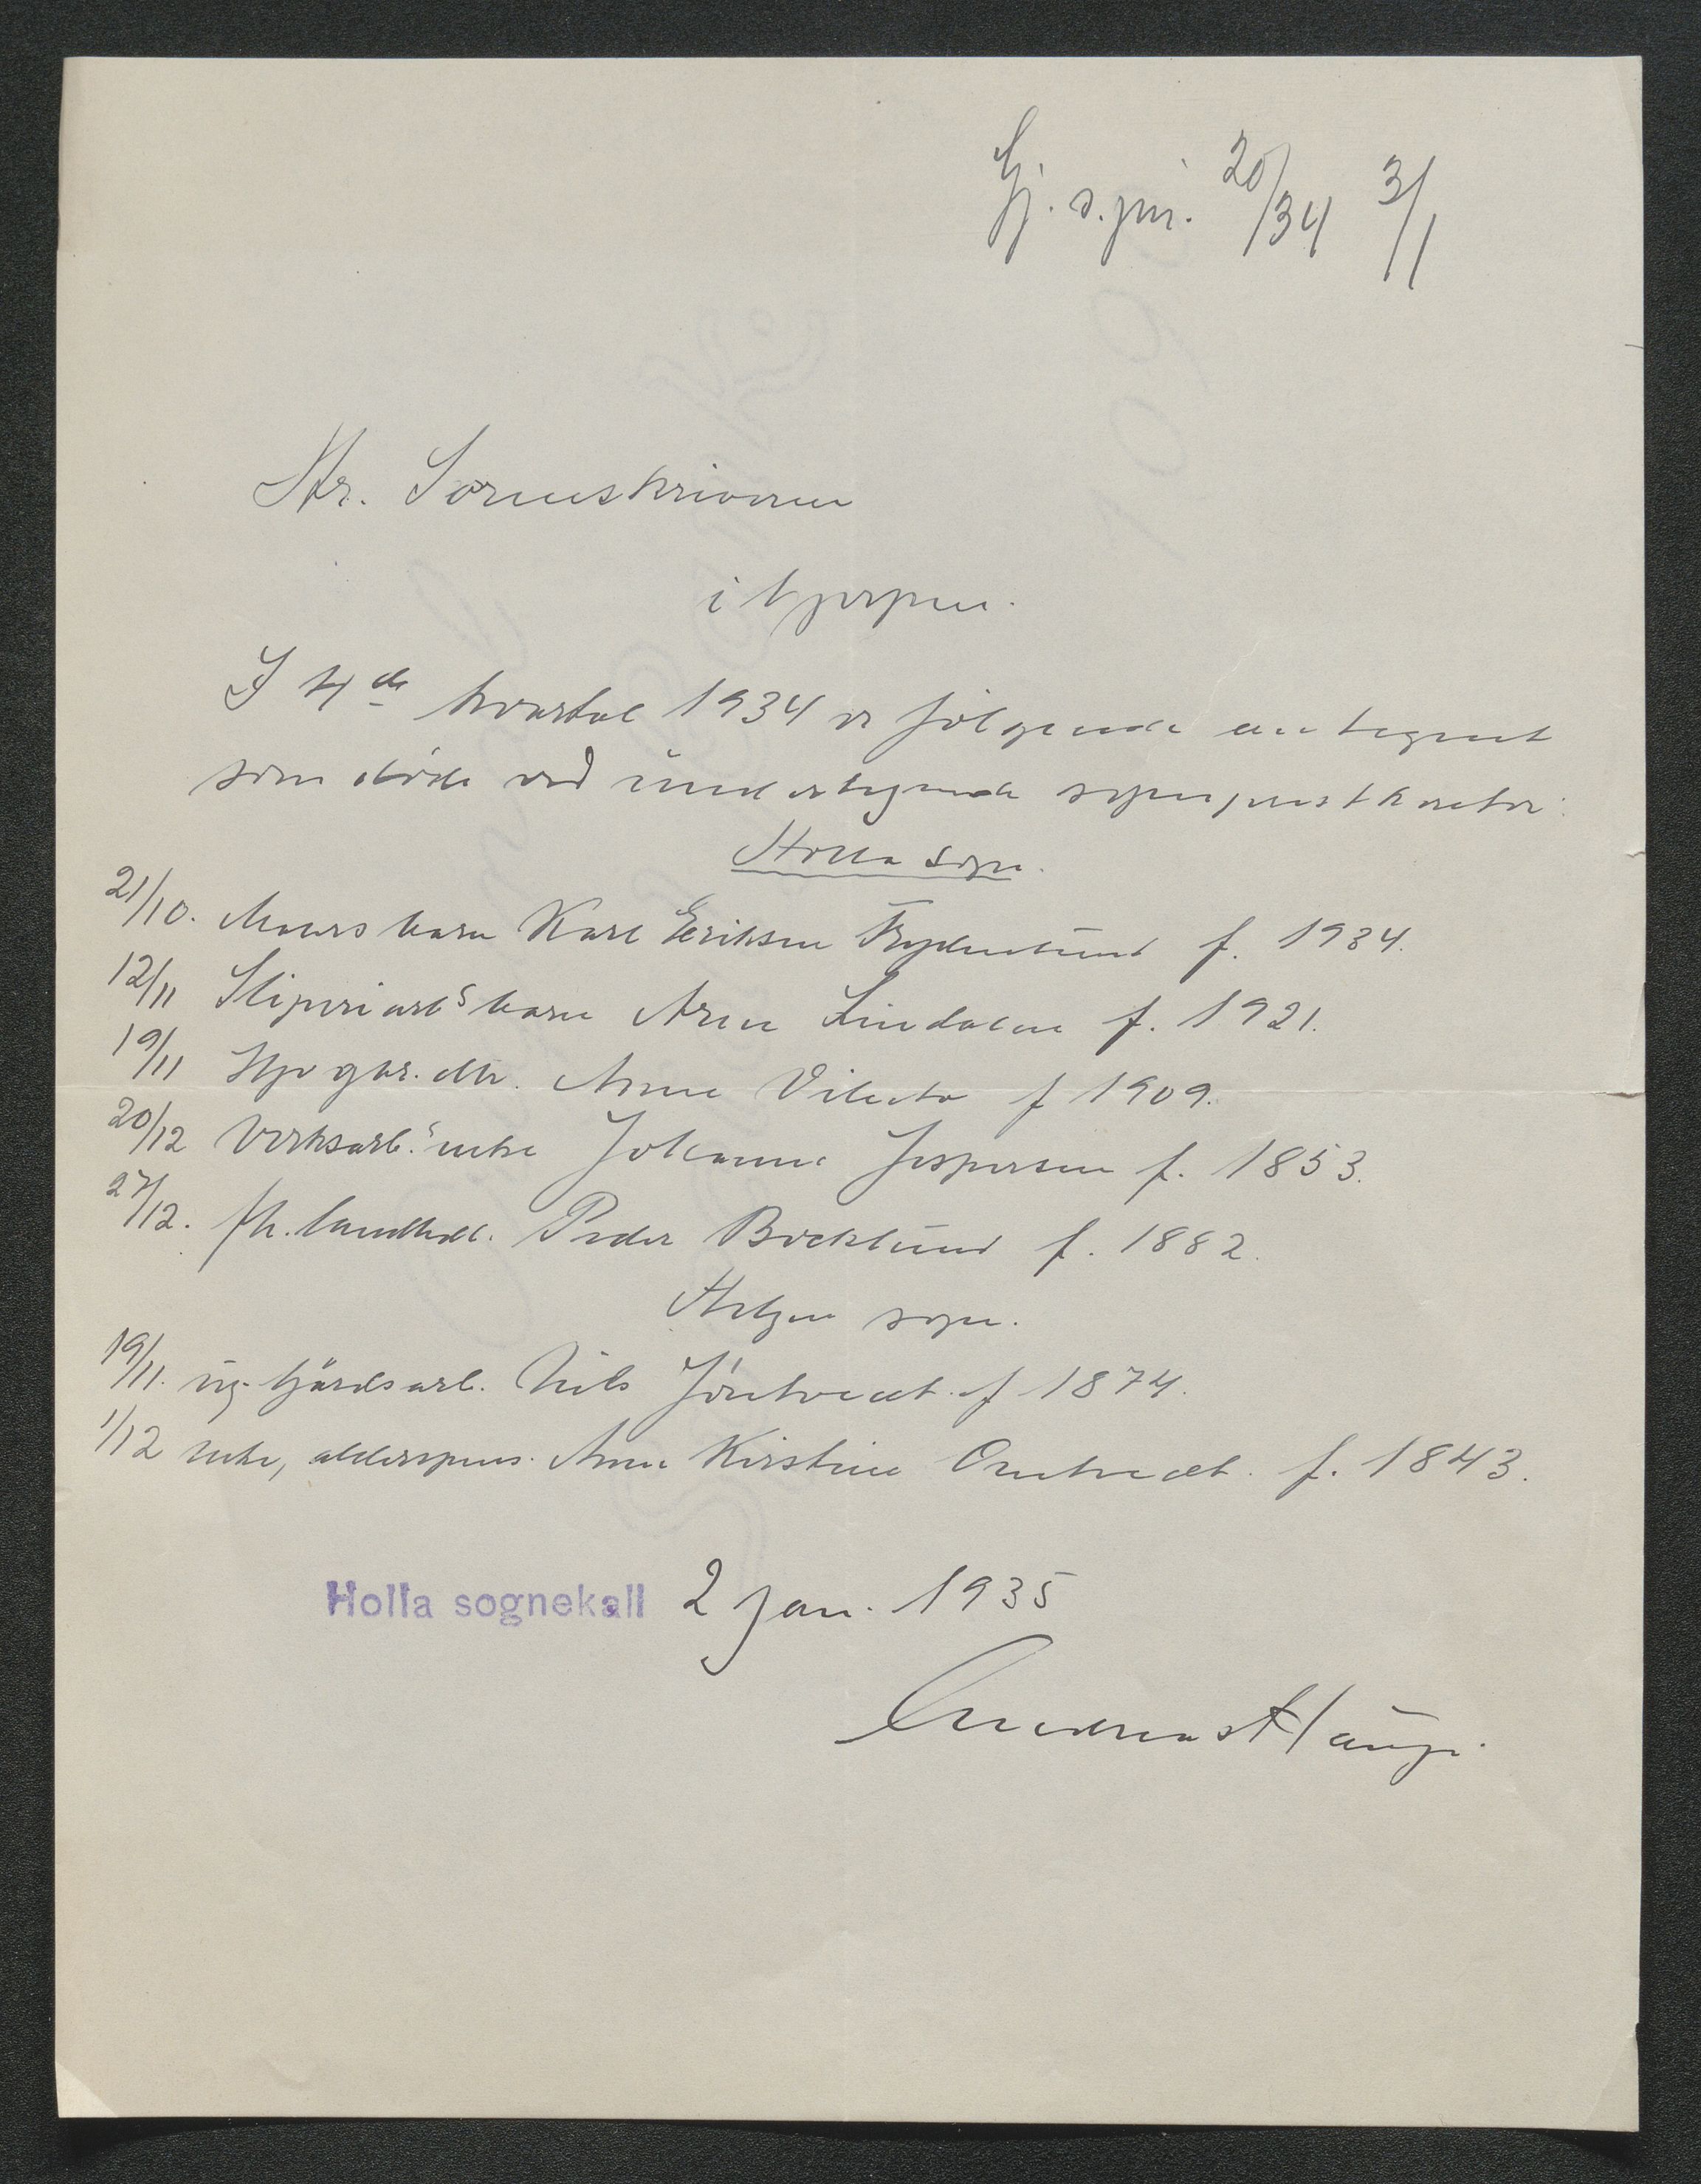 Gj. s.jnr. 20/34 3/1
Hr. Sorenskriveren
i Gjerpen.
I 4de kvartal 1934 er følgende antegnet
som døde ved undertegnede sogneprestkontor:
Holla sogn.
21/10. Murers barn Karl Eriksen Frydenlund f. 1934.
12/11 Sliperiarb.s barn Arne Lindalen f. 1921.
19/11 Anne f 1909.
20/12 Verksarb.s enke Johanne Jespersen f. 1853.
27/12. fh. landhdl. Peder Bocklund f. 1882.
Helgen sogn.
19/11. ug. gårdsarb. Nils Jøntvedt. f 1874.
1/12 enke, alderspens. Anne Kirstine Ontvedt. f. 1843.
Holla sognekall 2 jan. 1935
Andreas Hauge.